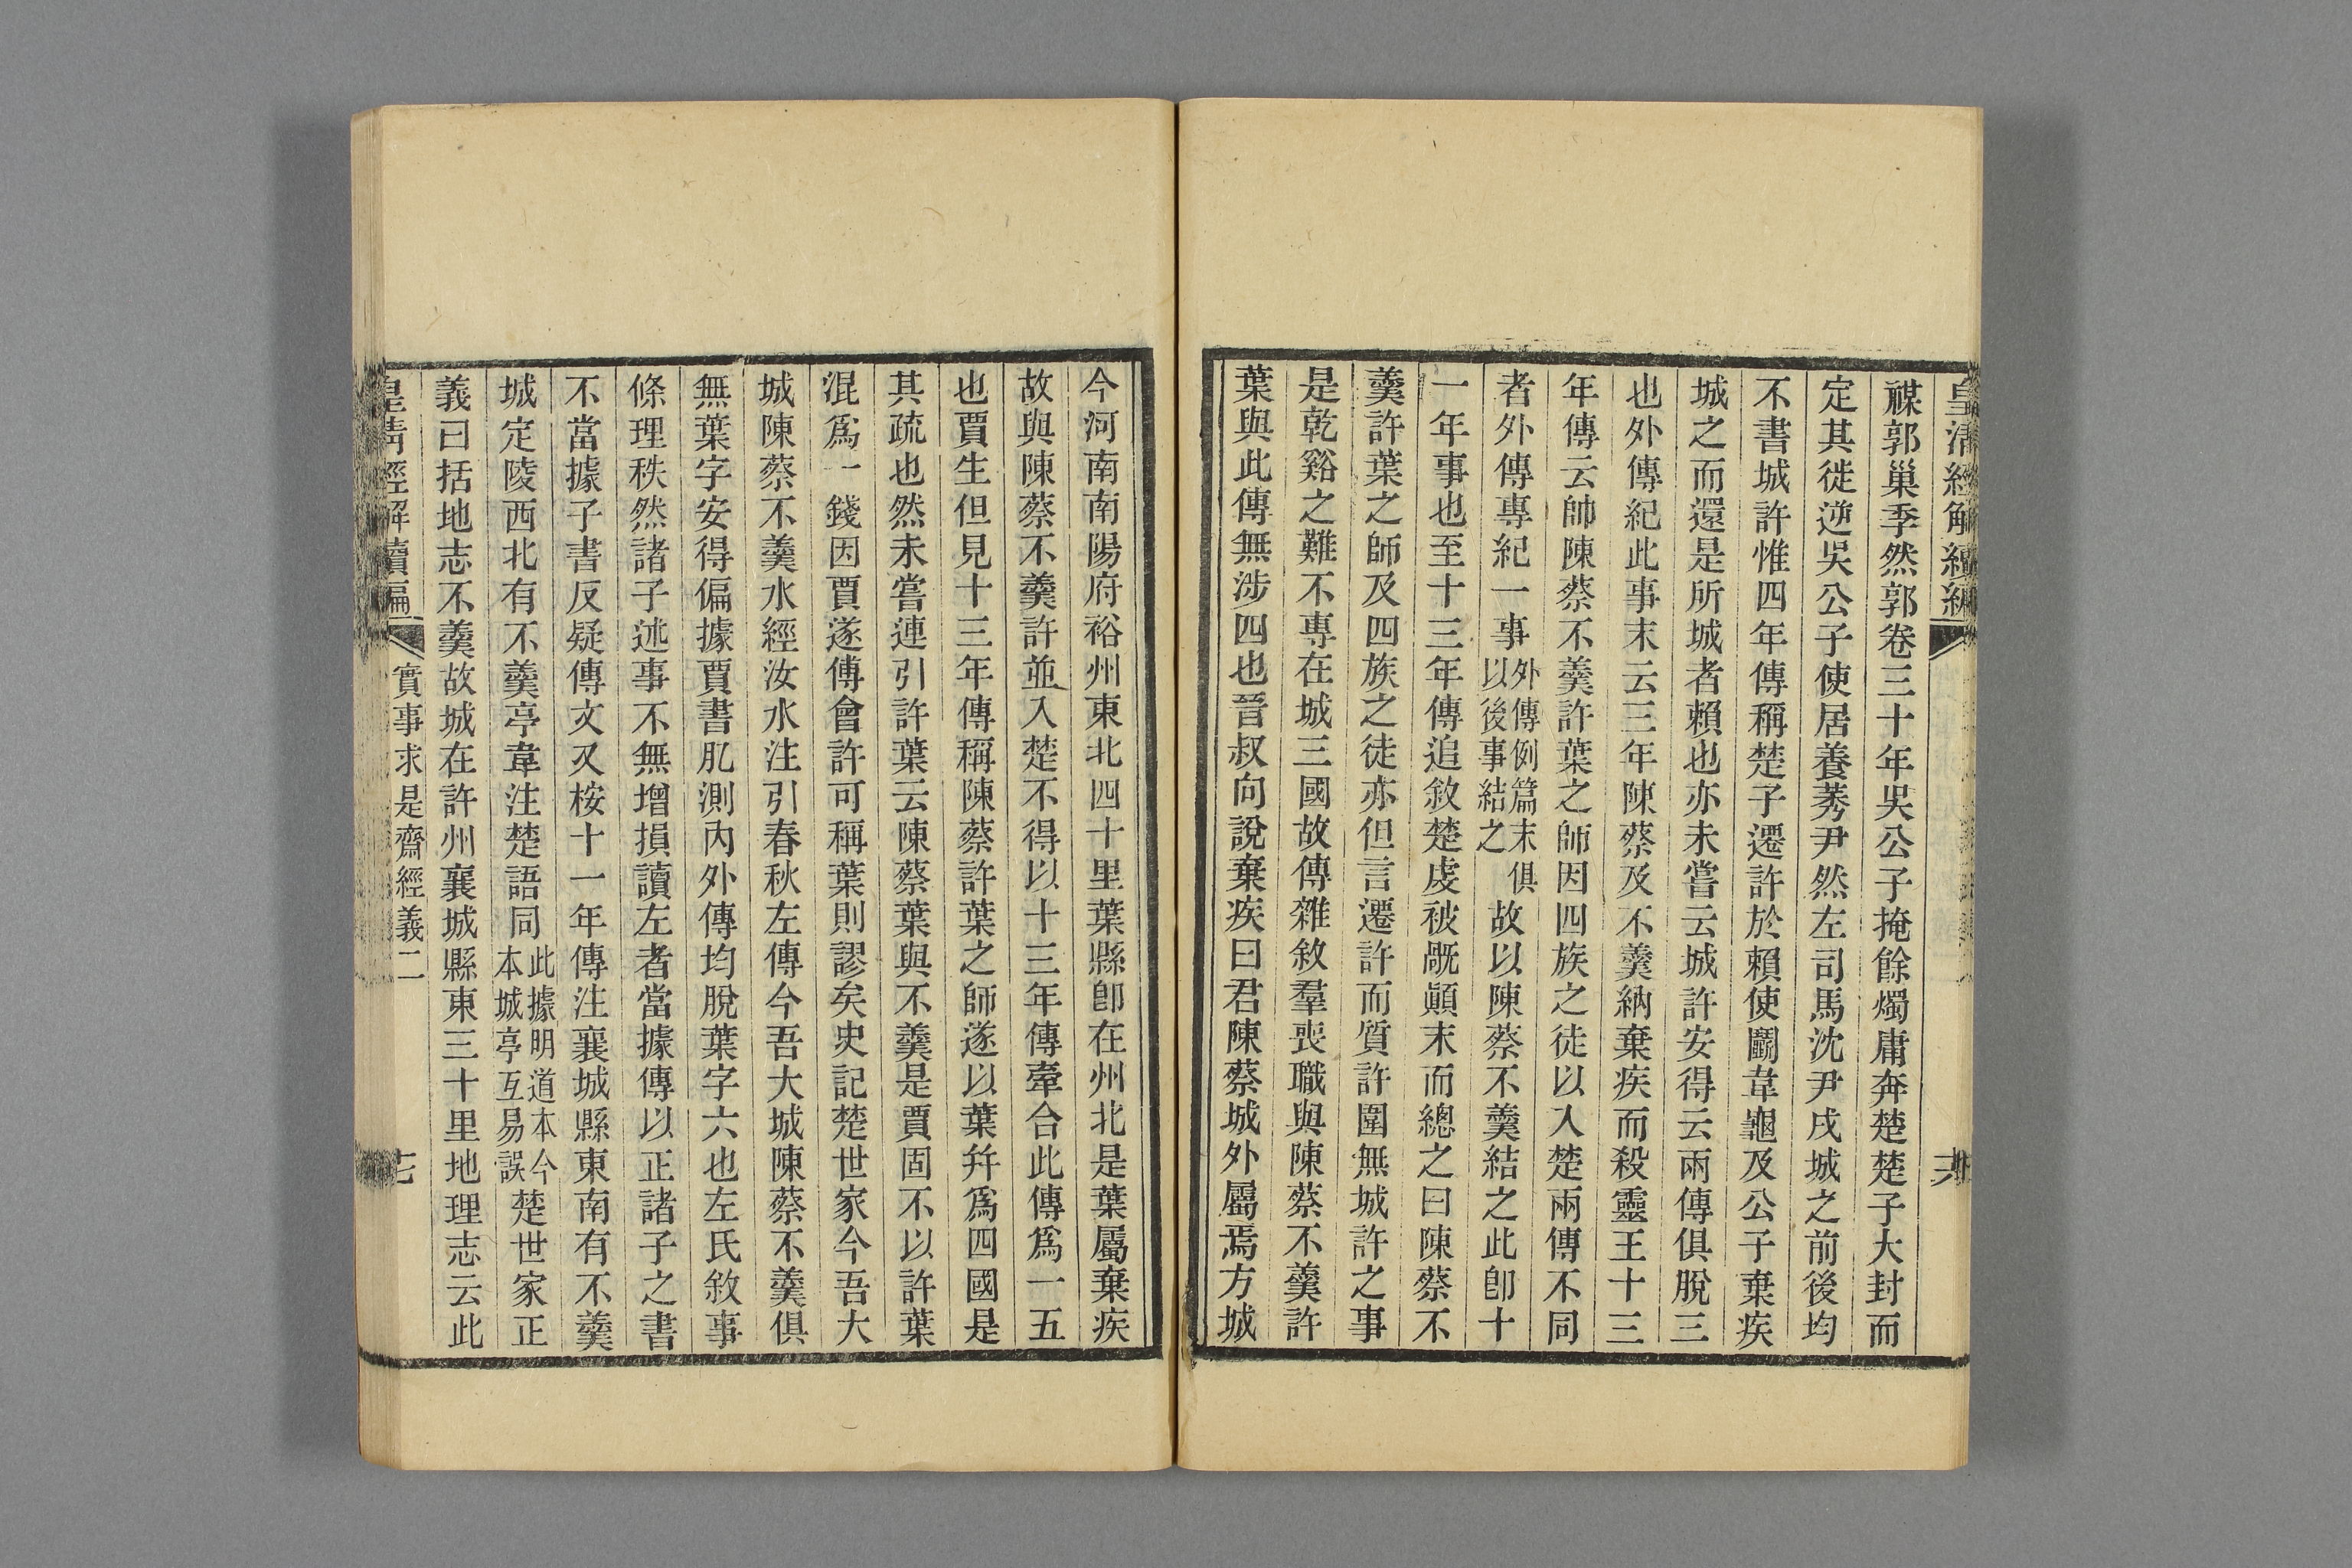 皇清經解續編
六
禖郭巢季然郭卷三十年吳公子掩餘燭庸奔楚楚子大封而
定其徙逆吳公子使居養莠尹然左司馬沈尹戌城之前後均
不書城許惟四年傳稱楚子遷許於賴使鬭韋龜及公子棄疾
城之而還是所城者賴也亦未嘗云城許安得云兩傳俱脫三
也外傳紀此事末云三年陳蔡及不羹納棄疾而殺靈王十三
年傳云帥陳蔡不羹許葉之師因四族之徒以入楚兩傳不同
者外傳專紀一事外傳例篇末俱以後事結之故以陳蔡不羹結之此卽十
一年事也至十三年傳追敘楚虔被戕顚末而總之曰陳蔡不
羹許葉之師及四族之徒亦但言遷許而質許圍無城許之事
是乾谿之難不專在城三國故傳雜敘羣喪職與陳蔡不羹許
葉與此傳無涉四也晉叔向說棄疾曰君陳蔡城外屬焉方城
今河南南陽府裕州東北四十里葉縣卽在州北是葉屬棄疾
故與陳蔡不羹許並入楚不得以十三年傳牽合此傳爲一五
也賈生但見十三年傳稱陳蔡許葉之師遂以葉幷爲四國是
其疏也然未嘗連引許葉云陳蔡葉與不羹是賈固不以許葉
混爲一錢因賈遂傅會許可稱葉則謬矣史記楚世家今吾大
城陳蔡不羹水經汝水注引春秋左傳今吾大城陳蔡不羹俱
無葉字安得偏據賈書肊測內外傳均脫葉字六也左氏敘事
條理秩然諸子述事不無增損讀左者當據傳以正諸子之書
不當據子書反疑傳文又桉十一年傳注襄城縣東南有不羹
城定陵西北有不羹亭韋注楚語同此據明道本今本城亭互易誤楚世家正
義曰括地志不羹故城在許州襄城縣東三十里地理志云此
皇清經解續編
實事求是齋經義二
七